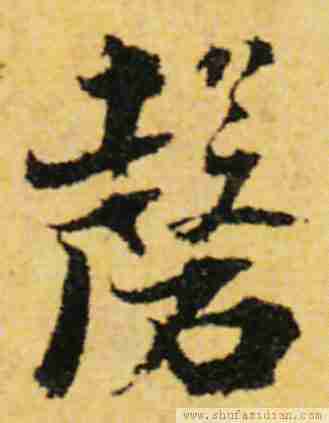 磬
www.shufazidian.com